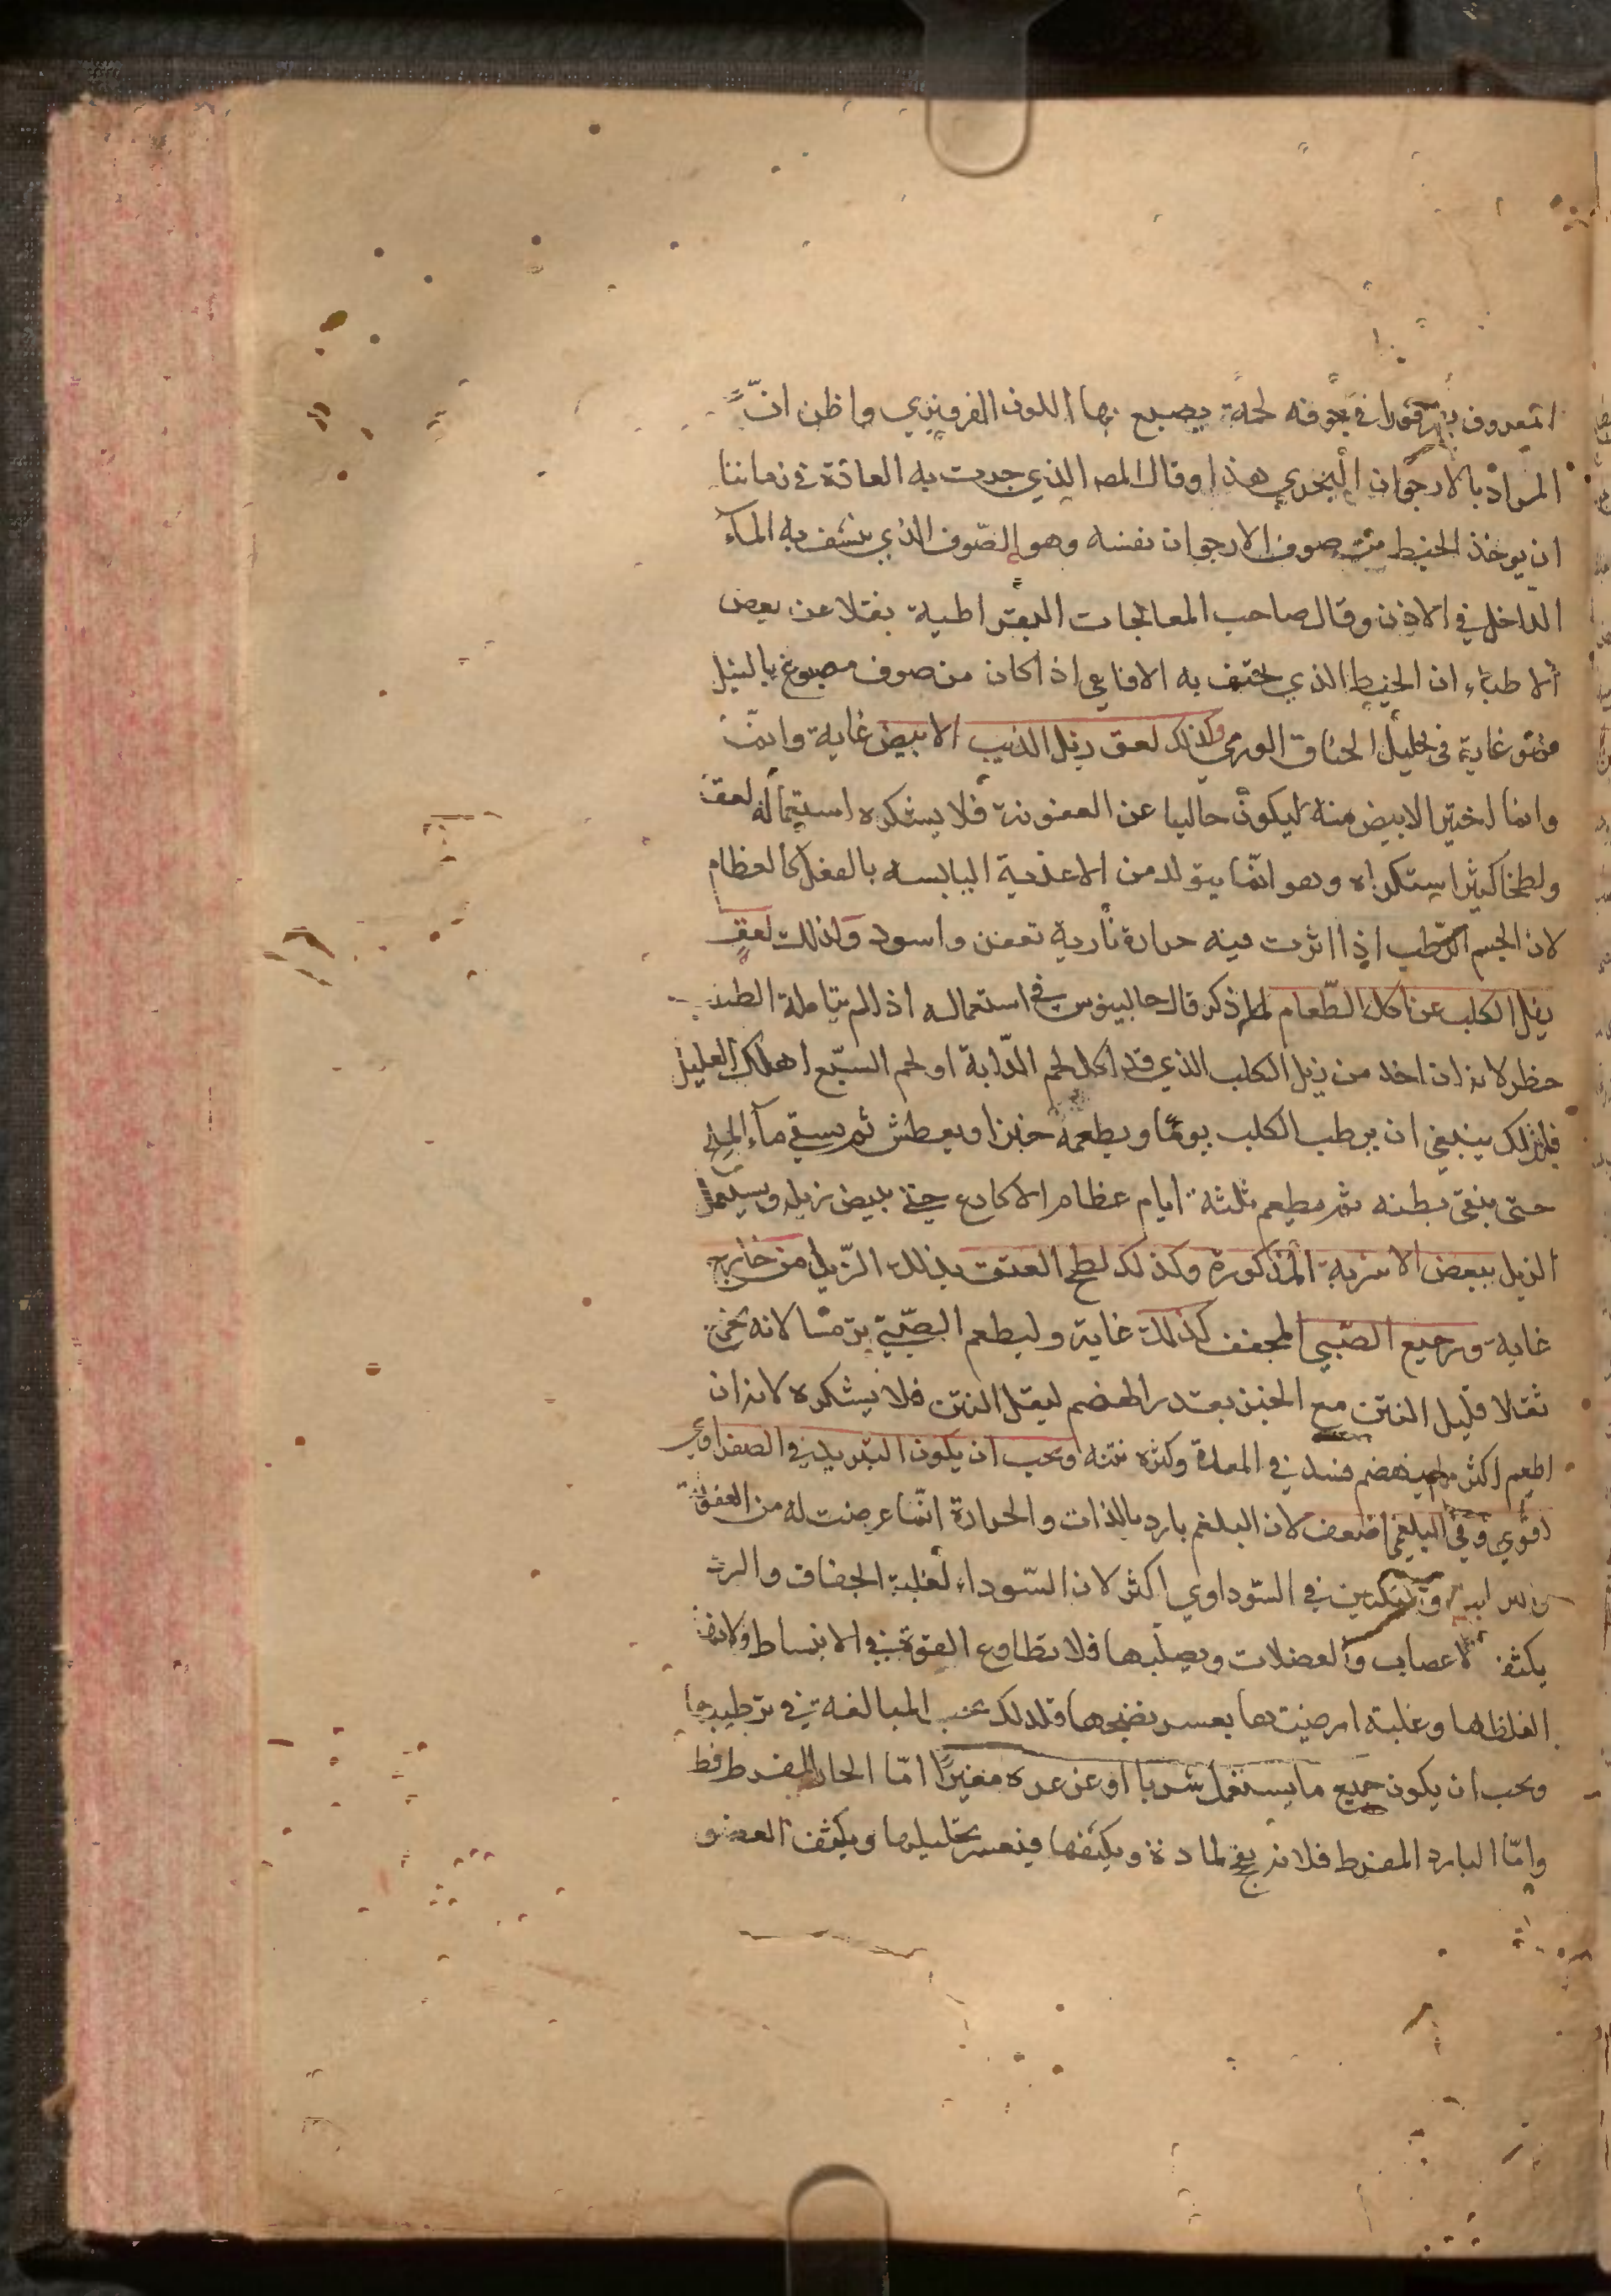 المعروف في جوفه لحمة يصبغ بها اللون الفرفيري واظن ان
المراد بالارجوان البحري هذا وقال المص الذي جرت به العادة في زماننا
ان يوخذ الخيط من صوف الارجوان نفسه وهو الصوف الذي ينشف به الماء
الداخل في الاذن وقال صاحب المعالجات البقراطية نقلا عن بعض
الاطباء ان الخيط الذي يختنق به الافاعي اذا كان من صوف مصبوغ بالنيل
فهو غاية في تحليل الخناق الورمي وكذلك لعق زبل الذيب الابيض غاية وانما
وانما اختير الابيض منه ليكون خاليا عن العفونة فلا يستكره استعماله لعقا
ولطخا كثير استكراه وهو انما يتولد من الاغذية اليابسه بالفعل كالعظام
لان الجسم الرطب اذا اثرت فيه حرارة نارية تعفن واسود وكذلك لعق
زبل الكلب عن اكل الطعام لما ذكر قال جالينوس في استعماله اذا لم يتامله الطبيب
خطر لانه ان اخذ من زبل الكلب الذي قد اكل لحم الدابة او لحم السبع اهلك العليل
فلذلك ينبغي ان يربط الكلب يوما ويطعمه خبزا ويعطش ثم يسقي ماء الملح
حتى ينقى بطنه ثم يطعم ثلثة ايام عظام الاكارع حتى يبيض زبله ويستعمل
الزبل ببعض الاشربة المذكورة وكذلك لطخ العنق بذلك الزبل من خارج
غاية ورجيع الصبي المجفف كذلك غاية وليطعم الصبي ترمسا لانه يخرج
ثفلا قليل النتن مع الخبز بقدر الهضم ليقل النتن فلا يستكره لانه ان
اطعم اكثر مما ينهضم فسد في المعدة وكثره نتنه ويجب ان يكون التبريد في الصفراوي
اقوى وفي البلغمي اضعف لان البلغم بارد بالذات والحرارة انما عرضت له من العفونة
في السوداوي اكثر لان السوداء لغلبة الجفاف
يكثف الاعصاب والعضلات ويصلبها فلا تطاوع القوة في الانبساط ولانها
لغلظها وغلبة ارضيتها يعسر نضجها فلذلك يجب المبالغة في ترطيبها
ويجب ان يكون جميع ما يستعمل شربا او غرغرة مفترا اما الحار المفرط
واما البارد المفرط فلانه يفجج المادة ويكثفها فيعسر تحليلها ويكثف العضو